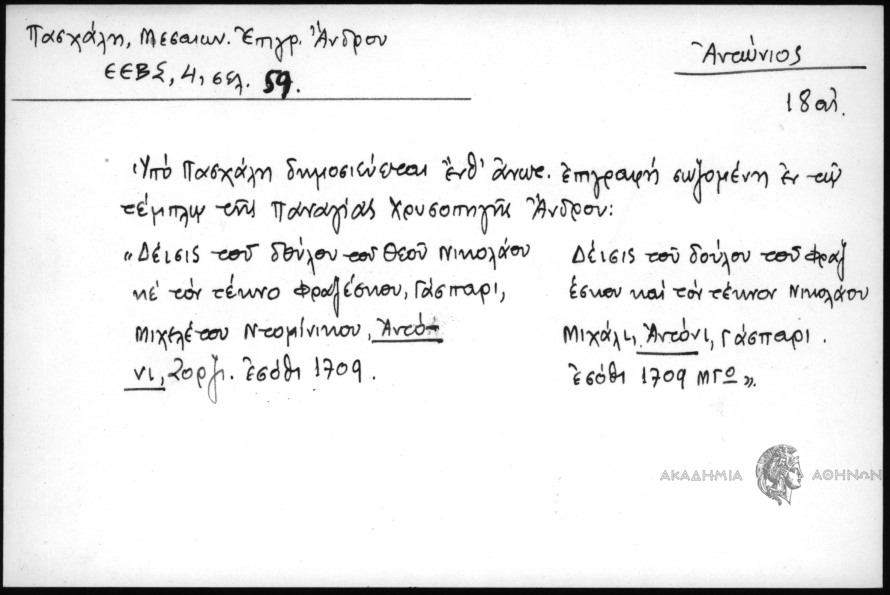 Πασχάλη, Μεσαιων. Ἐπιγρ. Ἄνδρου
ΕΕΒΣ, 4, σελ. 59.
Ἀντώνιος
18 αἰ.
Ὑπὸ Πασχάλη δημοσιεύεται ἔνθ' ἀνωτ. ἐπιγραφή σωζομένη ἐν τῷ
τέμπλῳ τῆς Παναγίας Χρυσοπηγῆς Ἄνδρου:
«Δέισις τοῦ δούλου τοῦ Θεοῦ Νικολάου
κὲ τὸν τέκνο Φραζέσκου, Γάσπαρι,
Μιχελέ του Ντομίνικου, Ἀντό-
νι, Ζορζι. ἐσόθι 1709.
Δέισις τοῦ δούλου τοῦ Φραζ
έσκου καὶ τὸν τέκνον Νικολάου
Μιχάλι, Ἀντόνι, Γάσπαρι.
ἐσόθι 1709 ΜΓΟ».
ΑΚΑΔΗΜΙΑ ΑΘΗΝΩΝ